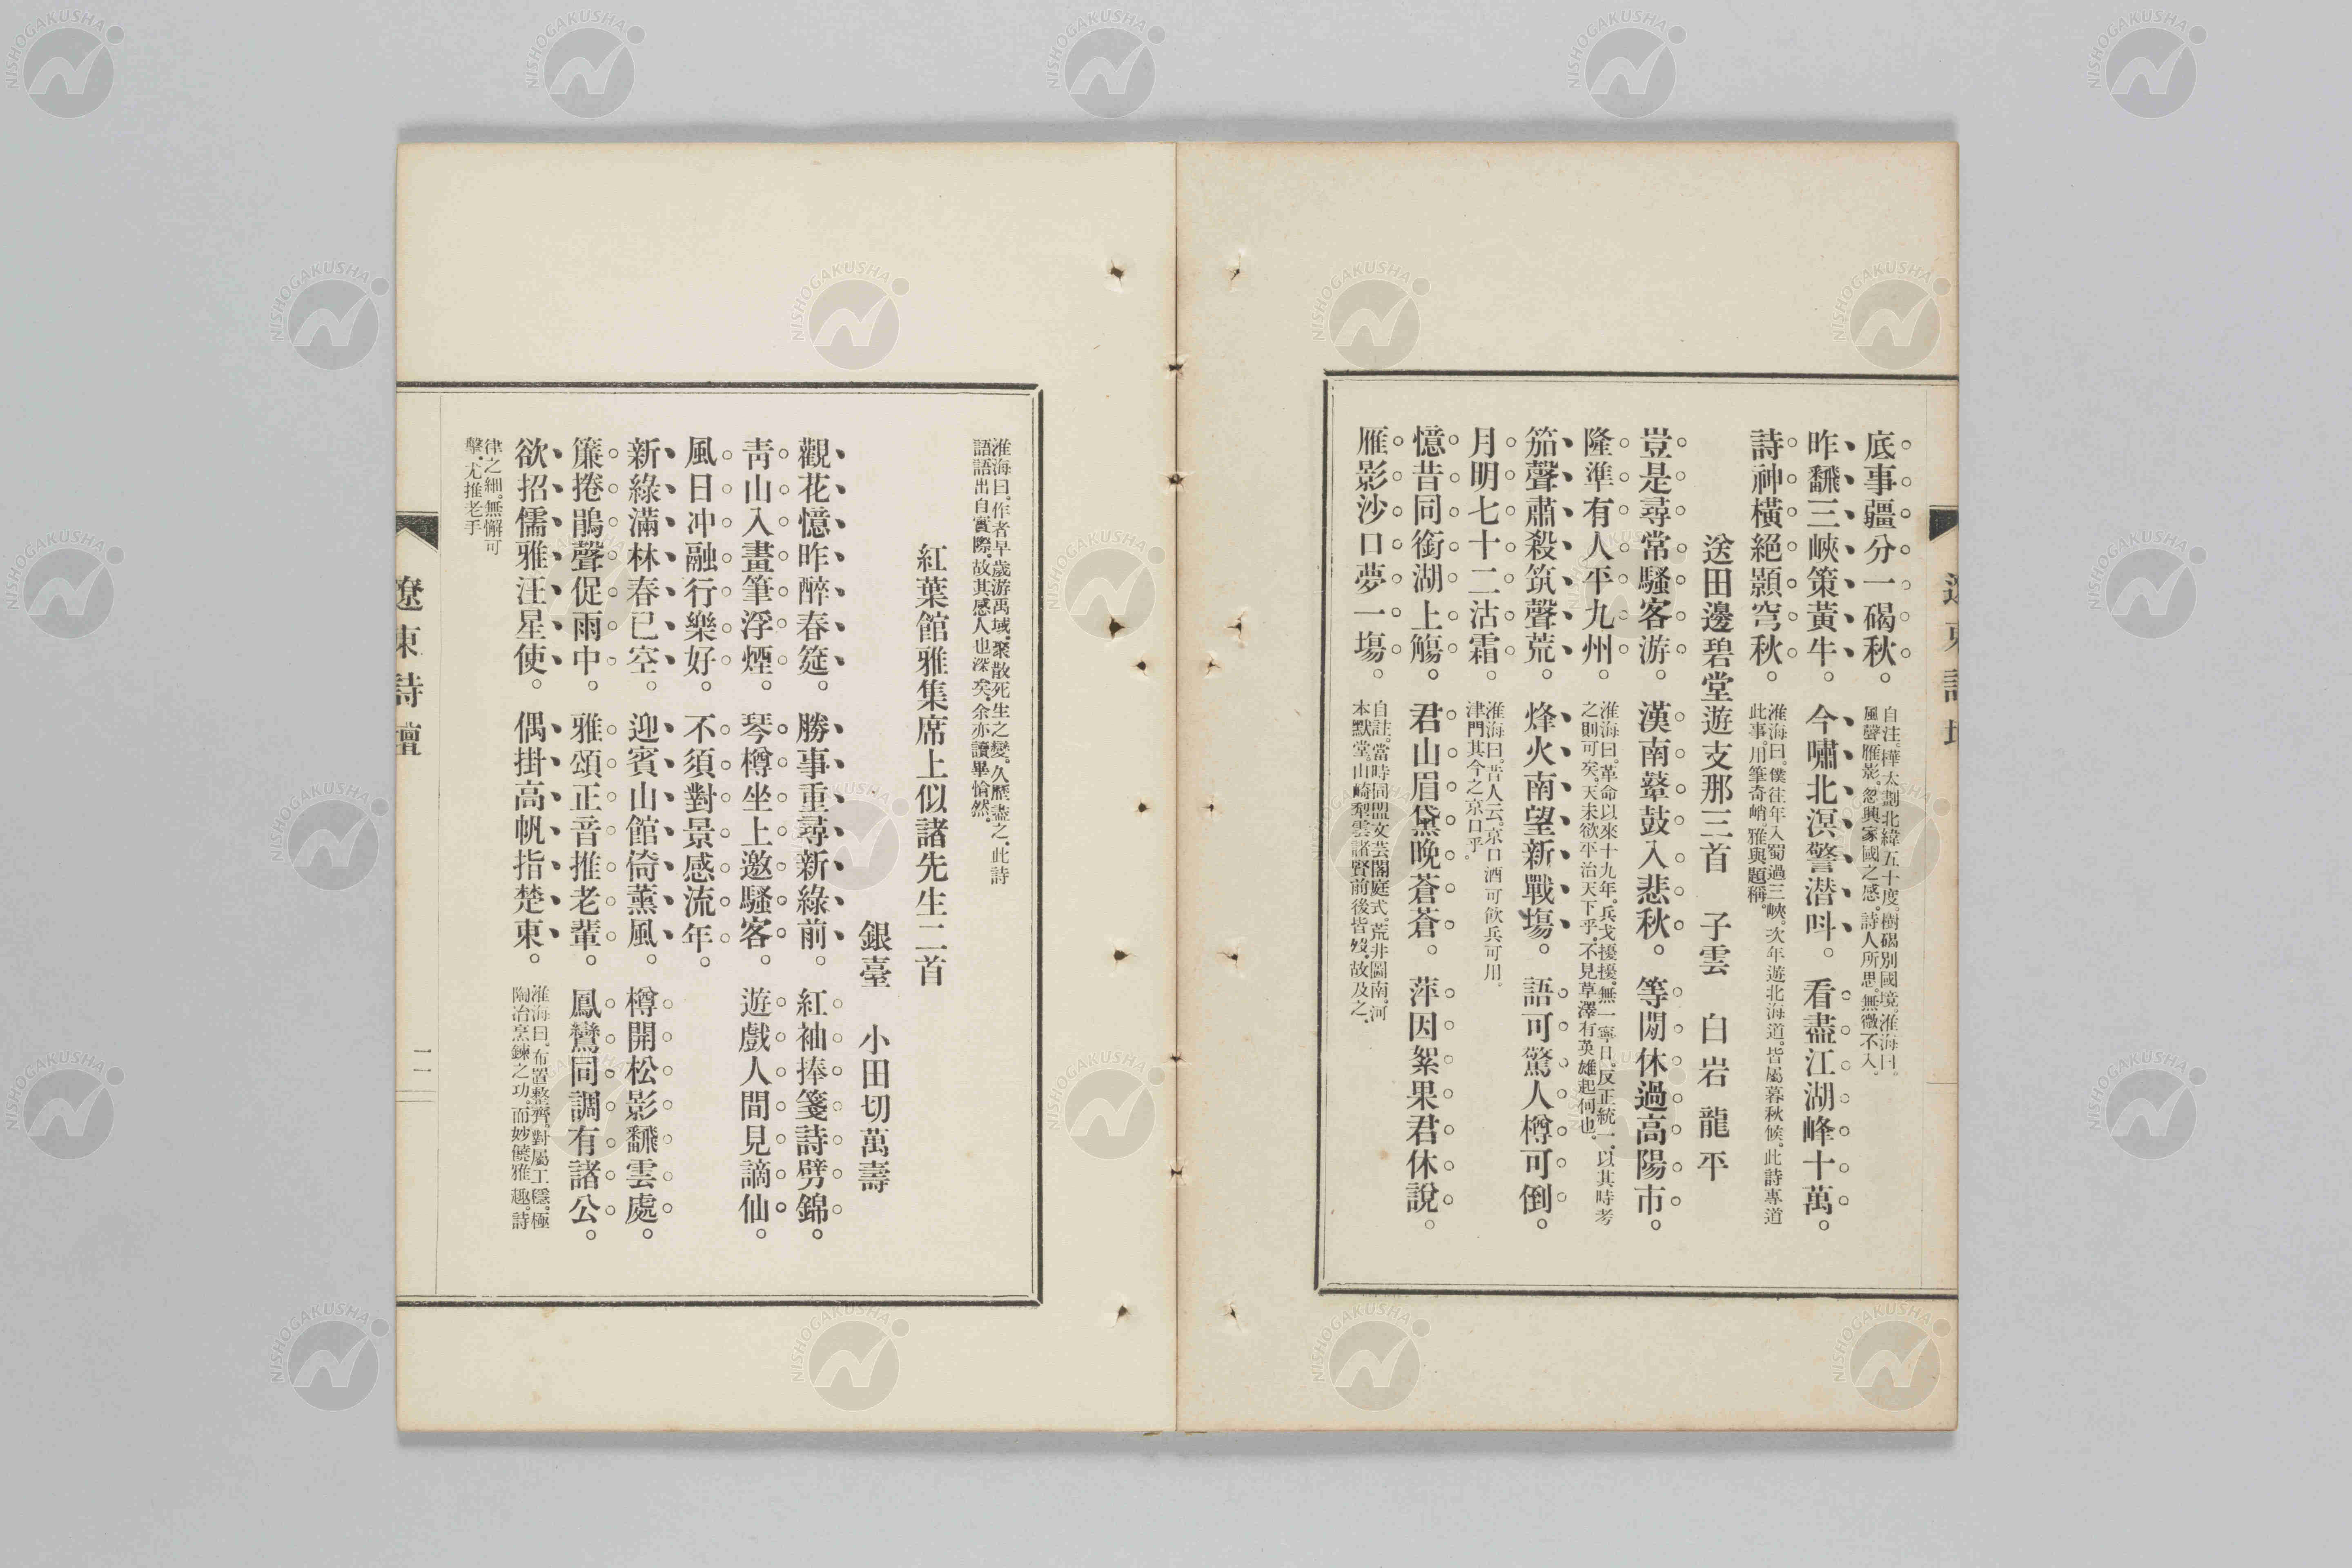 底事疆分一碣秋。
自注。樺太劃北緯五十度。樹碣別國境。淮海曰。
風聲雁影。忽興家國之感。詩人所思。無微不入。
昨飜三峽策黃牛。今嘯北溟警潛虯。看盡江湖峰十萬。
詩神橫絕顥穹秋。
淮海曰。僕往年入蜀過三峽。次年遊北海道。皆屬暮秋候。此詩專道
此事。用筆奇峭。雅與題稱。
送田邊碧堂遊支那三首 子雲 白岩龍平
豈是尋常騷客游。漢南鼙鼓入悲秋。等閒休過高陽市。
隆準有人平九州。
淮海曰。革命以來十九年。兵戈擾擾。無一寧日。反正統一。以其時考
之則可矣。天未欲平治天下乎。不見草澤有英雄起何也。
笳聲肅殺筑聲荒。烽火南望新戰塲。語可驚人樽可倒。
月明七十二沽霜。
淮海曰。昔人云。京口酒可飲兵可用。
津門其今之京口乎。
憶昔同銜湖上觴。君山眉黛晚蒼蒼。萍因絮果君休說。
雁影沙口夢一塲。
自註。當時同盟文芸閣庭式。荒井圖南。河
本默堂。山崎梨雲諸賢前後皆歿。故及之。
淮海曰。作者早歲游禹域。聚散死生之變。久歷盡之。此詩
語語出自實際。故其感人也深矣。余亦讀畢愴然。
紅葉館雅集席上似諸先生二首
銀臺 小田切萬壽
觀花憶昨醉春筵。勝事重尋新綠前。紅袖捧箋詩劈錦。
靑山入畫筆浮煙。琴樽坐上邀騷客。遊戲人間見謫仙。
風日冲融行樂好。不須對景感流年。
新綠滿林春已空。迎賓山館倚薰風。樽開松影飜雲處。
簾捲鵑聲促雨中。雅頌正音推老輩。鳳鸞同調有諸公。
欲招儒雅汪星使。偶掛高帆指楚東。
淮海曰。布置整齊。對屬工穩。極
陶冶烹鍊之功。而妙饒雅趣。詩
律之細。無懈可
擊。尤推老手
遼東詩壇
二一